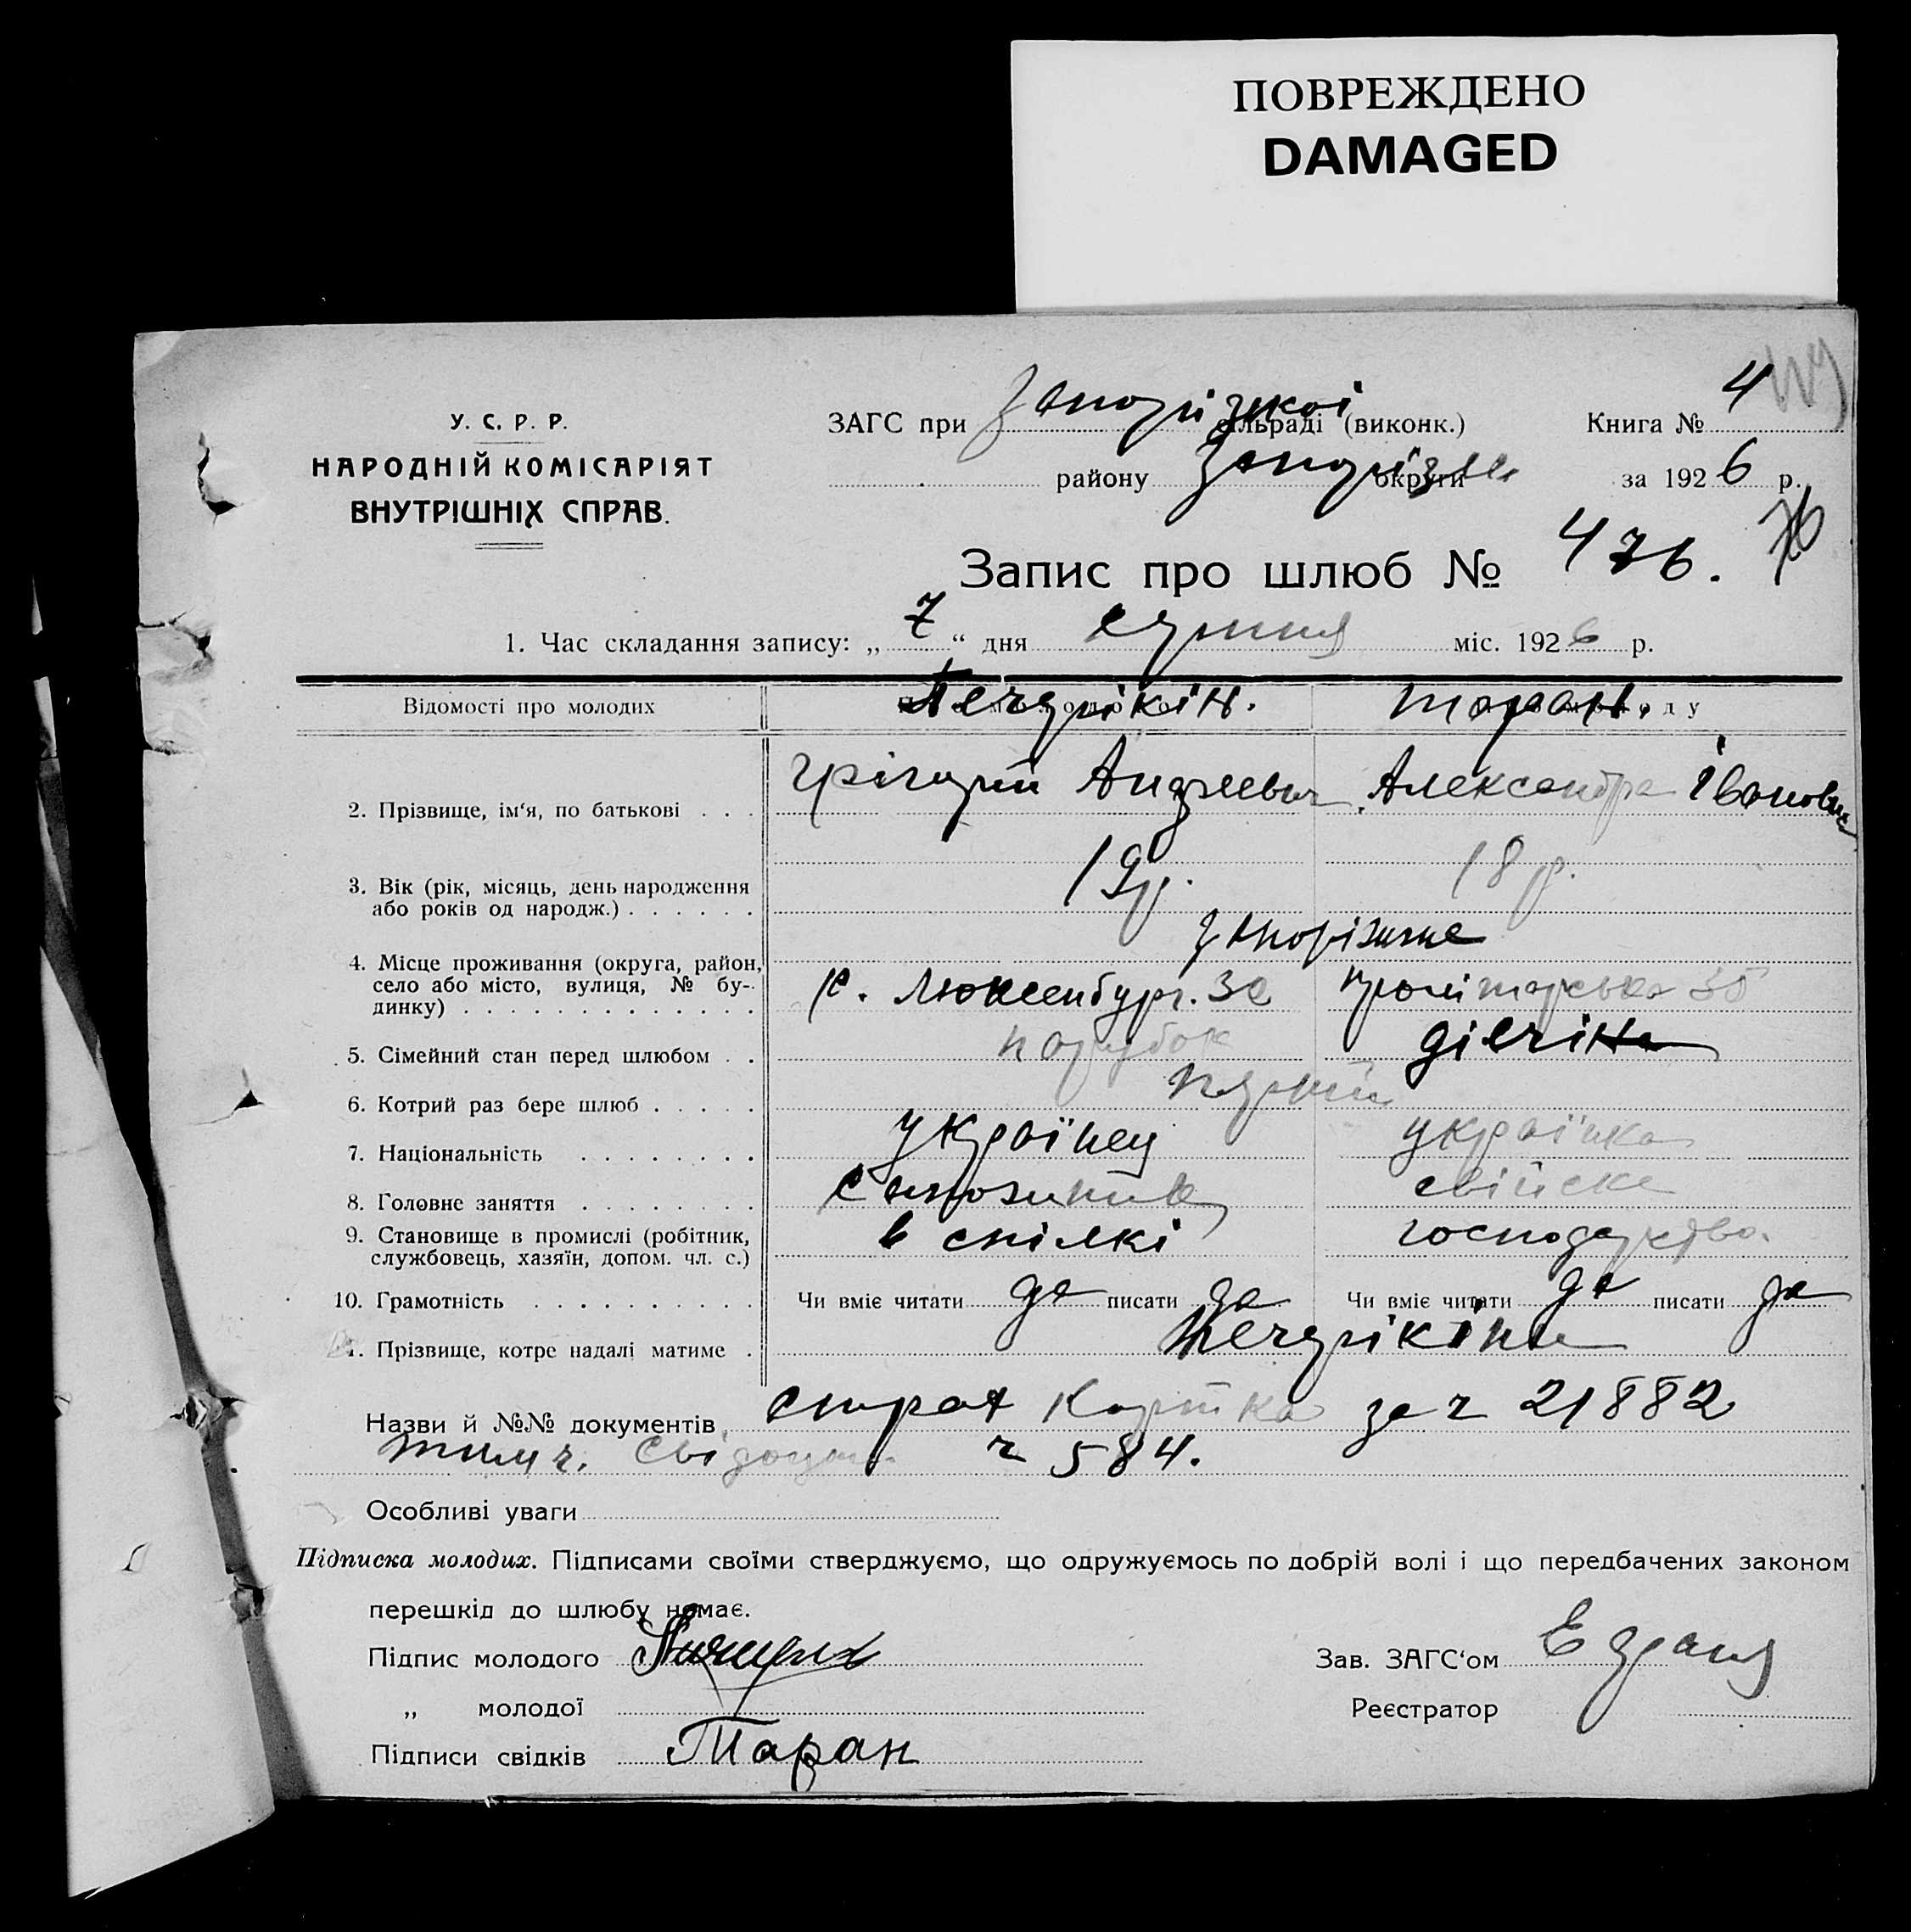 ПОВРЕЖДЕНО
DAMAGED
У. С. Р. Р.
НАРОДНІЙ КОМІСАРІЯТ
ВНУТРІШНІХ СПРАВ.
ЗАГС при Запорізкоі сільраді (виконк.)
району округи
Книга № 4
за 1926 р.
76
Запис про шлюб № 476.
1. Час складання запису: „ 7 “ дня серпня міс. 1926 р.
Відомості про молодих
Таран.
2. Прізвище, ім‘я, по батькові . . . Грігорій Андреевич Александра Івановна
3. Вік (рік, місяць, день народження
або років од народж.) . . . . . . 19 р. 18 р.
Запоріжжє
4. Місце проживання (округа, район,
село або місто, вулиця, № бу-
динку) . . . . . . . . . . . . . Р. Люксенбург. 30 Пролітарська 35
5. Сімейний стан перед шлюбом . . парубок дівчіна
6. Котрий раз бере шлюб . . . . . перший
7. Національність . . . . . . . . українец українка
8. Головне заняття . . . . . . . . свійске
9. Становище в промислі (робітник,
службовець, хазяїн, допом. чл. с.) в спілкі господарство.
10. Грамотність . . . . . . . . . . Чи вміє читати да писати да Чи вміє читати да писати да
11. Прізвище, котре надалі матиме .
Назви й №№ документів страх картка за ч 21882
тимч. свідоцт. ч 584.
Особливі уваги
Підписка молодих. Підписами своїми стверджуємо, що одружуємось по добрій волі і що передбачених законом
перешкід до шлюбу немає.
Підпис молодого
Зав. ЗАГС‘ом
„ молодої
Реєстратор
Підписи свідків Таран